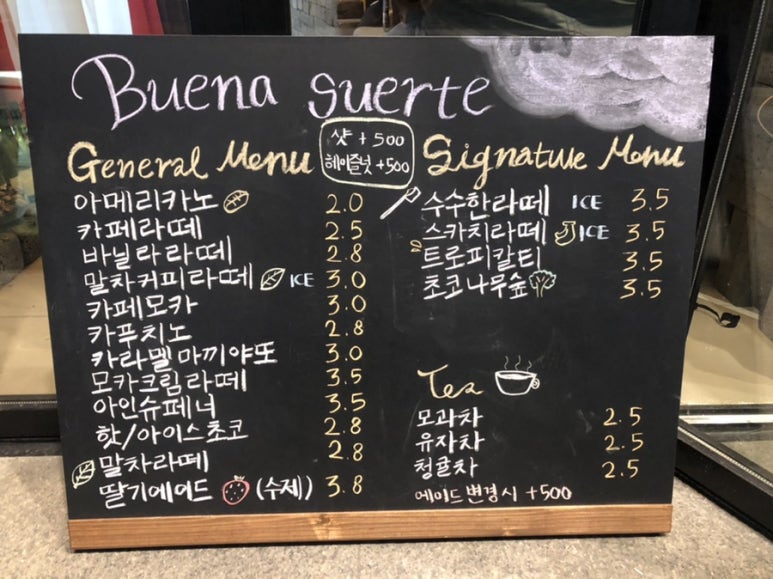 Buena suerte
샷 +500
헤이즐넛 +500
General Menu
아메리카노 2.0
카페라떼 2.5
바닐라라떼 2.8
말차커피라떼 ICE 3.0
카페모카 3.0
카푸치노 2.8
카라멜마끼야또 3.0
모카크림라떼 3.5
아인슈페너 3.5
핫/아이스초코 2.8
말차라떼 2.8
딸기에이드 (수제) 3.8
Signature Menu
수수한라떼 ICE 3.5
스카치라떼 ICE 3.5
트로피칼티 3.5
초코나무숲 3.5
Tea
모과차 2.5
유자차 2.5
청귤차 2.5
에이드 변경시 +500